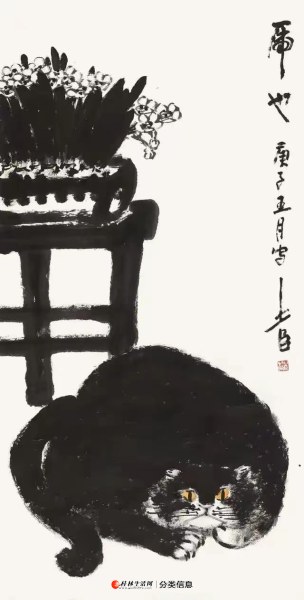 虎也
庚子五月写
桂林生活网 分类信息